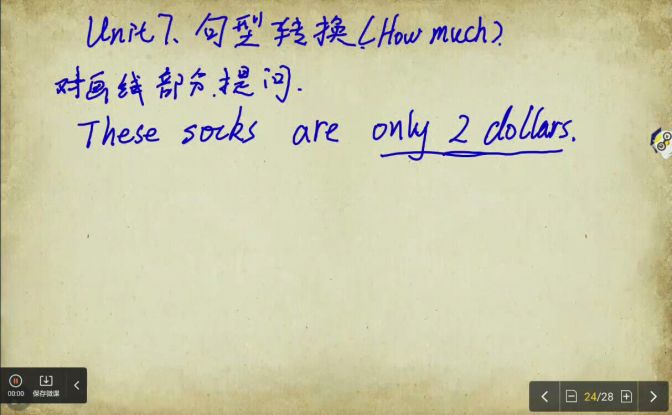 Unit 7、句型转换（How much）
对画线部分提问.
These socks are only 2 dollars.
00:00 保存微课
24/28